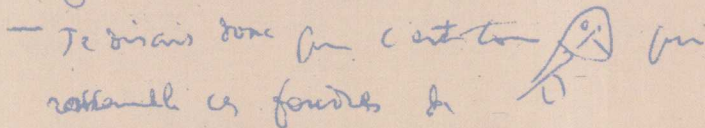 — Je disais donc que c'est ton que
rassemble ces foudres de